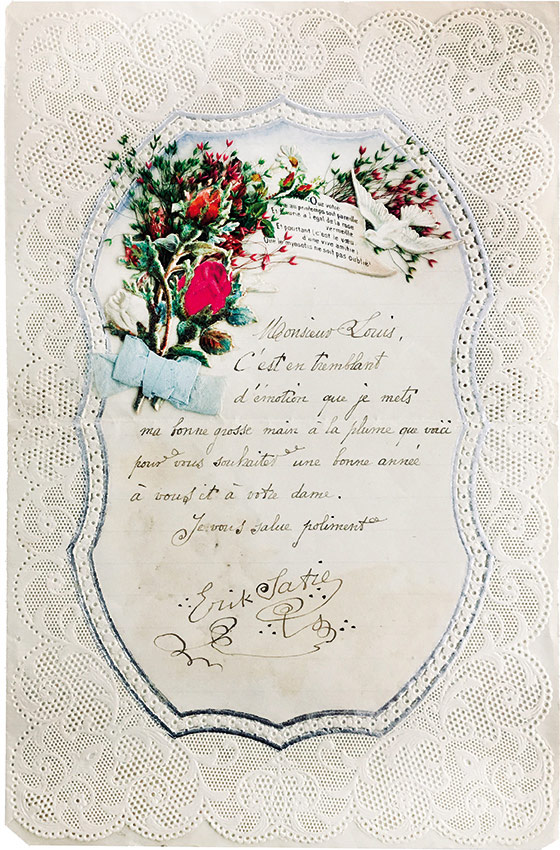 Que votre
au printemps soit pareille
Et brille à l'égal de la rose
vermeille
Et pourtant (c'est le vœu
d'une vive amitié)
Que le myosotis ne soit pas oublié!
Monsieur Louis,
C'est en tremblant
d'émotion que je mets
ma bonne grosse main à la plume que voici
pour vous souhaiter une bonne année
à vous et à votre dame.
Je vous salue poliment
Erik Satie